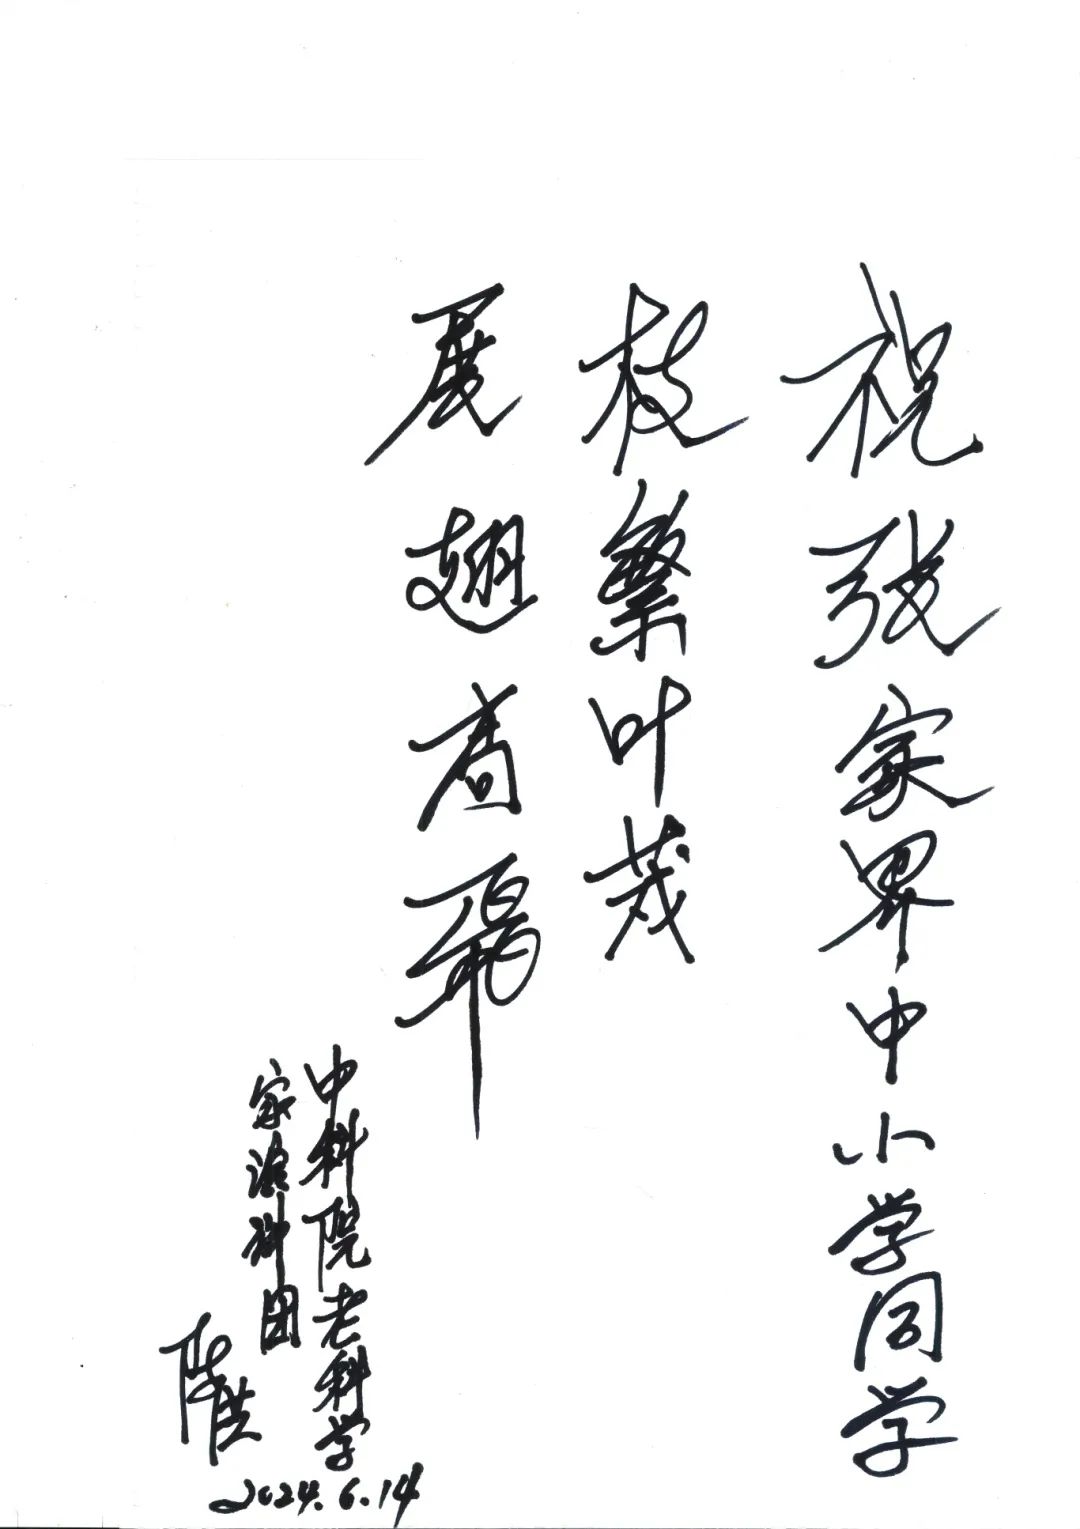 祝张家界中小学同学
枝繁叶茂
展翅高飛
中科院老科学
家演讲团
2024.6.14